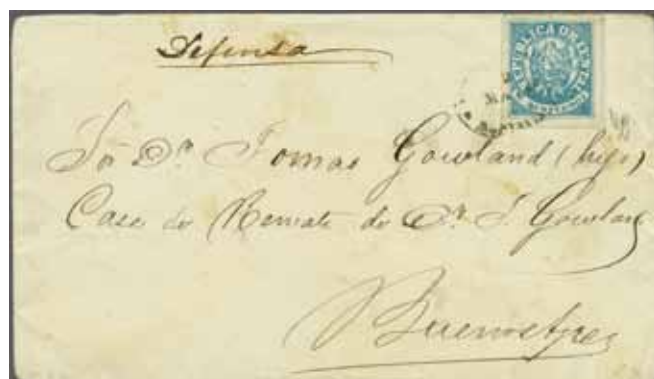 Defensa
REPUBLICA ORIENTAL
MONTEVIDEO
Sor Dn Tomas Gowland (hijo)
Casa de Remate de Dn T. Gowland
Buenos Ayres